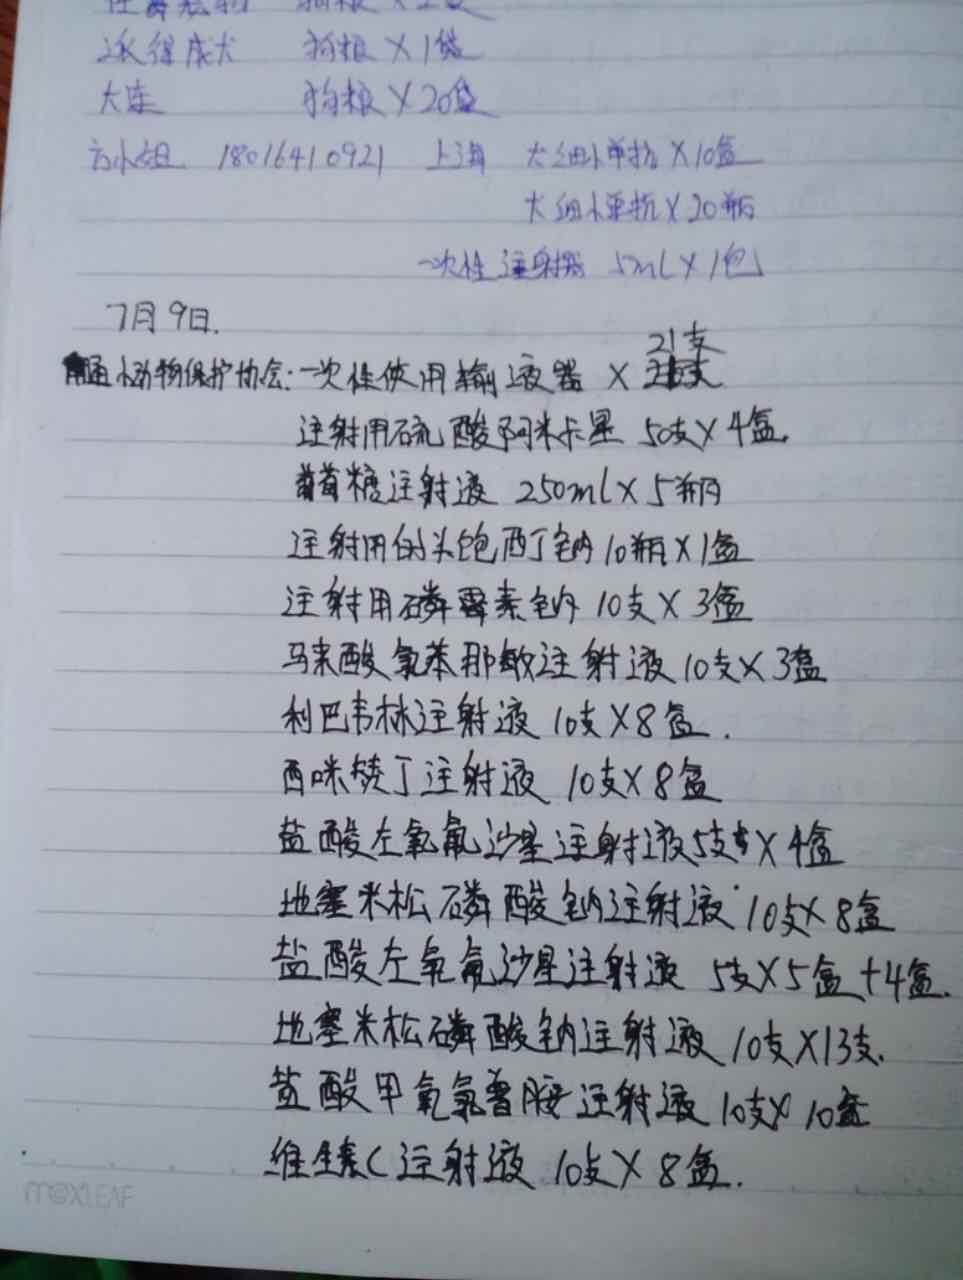 狗粮 X
成犬 狗粮 X 1袋
大连 狗粮 X 20袋
方小姐 18016410921 上海 犬细小单抗 X 10盒
犬细小单抗 X 20瓶
一次性注射器 5ml X 1包
7月9日.
南通小动物保护协会:一次性使用输液器 X 21支
注射用硫酸阿米卡星 50支 X 4盒.
葡萄糖注射液 250ml X 5瓶
注射用的头孢西丁钠 10瓶 X 1盒
注射用磷霉素钠 10支 X 3盒
马来酸氯苯那敏注射液 10支 X 3盒
利巴韦林注射液 10支 X 8盒.
西咪替丁注射液 10支 X 8盒
盐酸左氧氟沙星注射液 5支 X 4盒
地塞米松磷酸钠注射液 10支 X 8盒
盐酸左氧氟沙星注射液 5支 X 5盒 + 4盒.
地塞米松磷酸钠注射液 10支 X 13支.
盐酸甲氧氯普胺注射液 10支 X 10盒
维生素C注射液 10支 X 8盒.
MAXLEAF